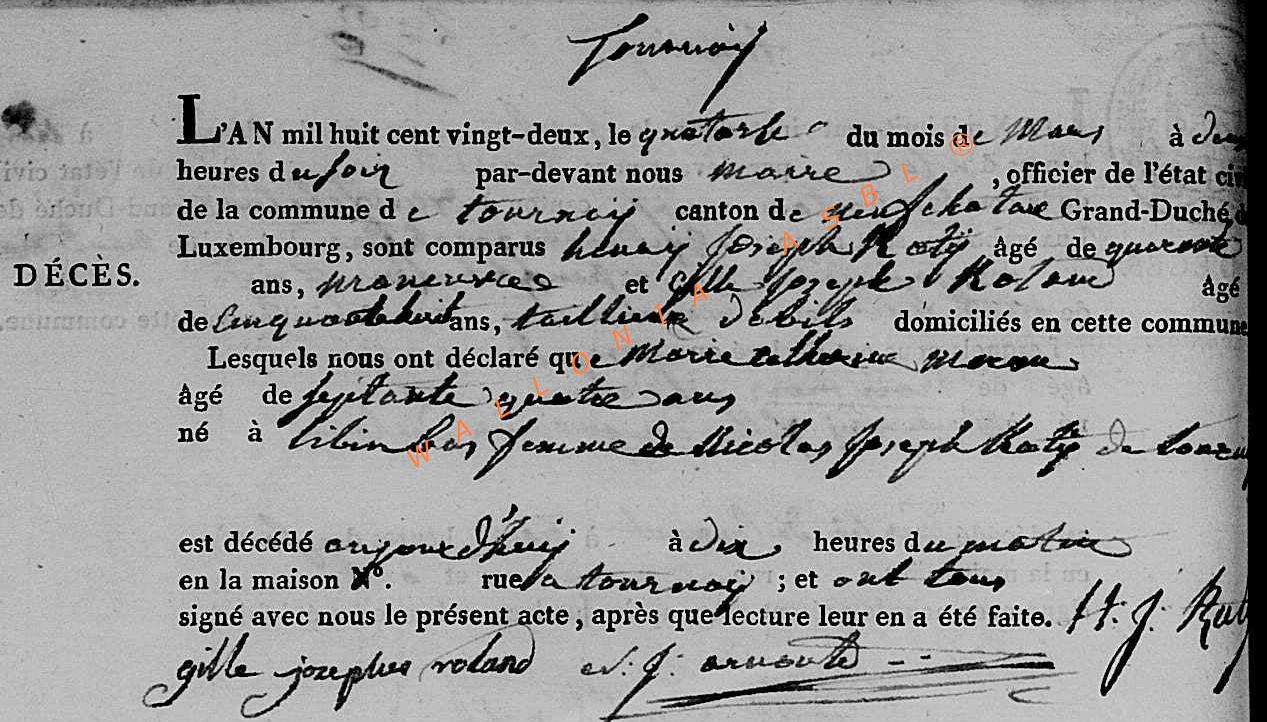 Tournay
L'AN mil huit cent vingt-deux, le quatorse du mois de Mars à deux
heures du soir par-devant nous maire , officier de l'état civi
de la commune de tournay canton de neufchatau Grand-Duché d
Luxembourg, sont comparus henry Joseph Roty âgé de quarante
DÉCÈS.
ans, et Gille Joseph Roland âgé
de Cinquantehuit ans, tallieur debits domiciliés en cette commune
Lesquels nous ont déclaré que Marie catherine
âgé de septante quatre ans
né à libin femme de Nicolas Joseph Roty de tourn
est décédé aujourd'huy à dix heures du matin
en la maison N°. rue a tournay ; et ont tous
signé avec nous le présent acte, après que lecture leur en a été faite. H. J. Roty
gille josephe roland N. J. arnould
WALLONIA ASBL ®